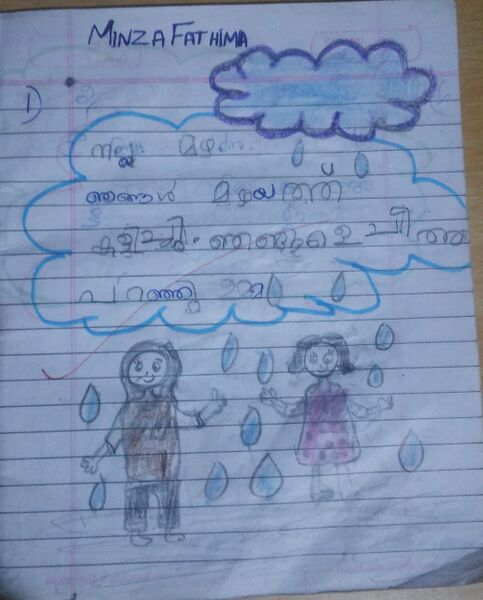 MINZA FATHIMA
1)
നല്ല മഴ
ഞങ്ങൾ മഴയത്ത്
കളിച്ചു. ഞങ്ങളുടെ
പറഞ്ഞു ഉമ്മ